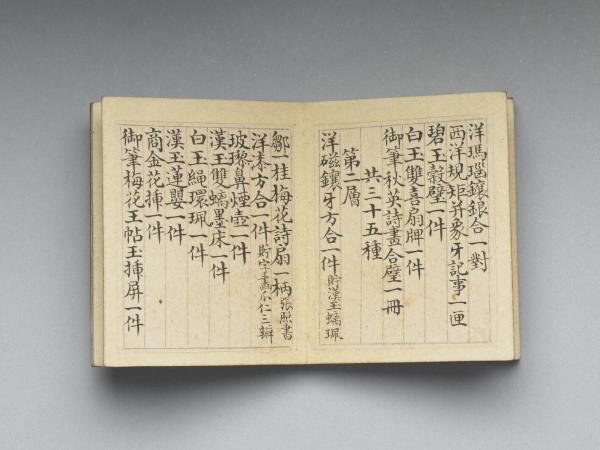 洋瑪瑙鑲銀合一對
西洋規矩并象牙記事一匣
碧玉穀璧一件
白玉雙喜扇牌一件
御筆秋英詩畫合璧一冊
共三十五種
第二層
洋磁鑲牙方合一件 貯漢玉螭珮
鄒一桂梅花詩扇一柄 張照書
洋漆方合一件 貯字畫仁三瓣
玻瓈鼻煙壺一件
漢玉雙螭墨床一件
白玉繩環珮一件
漢玉蓮嬰一件
商金花揷一件
御筆梅花玉帖玉揷屏一件